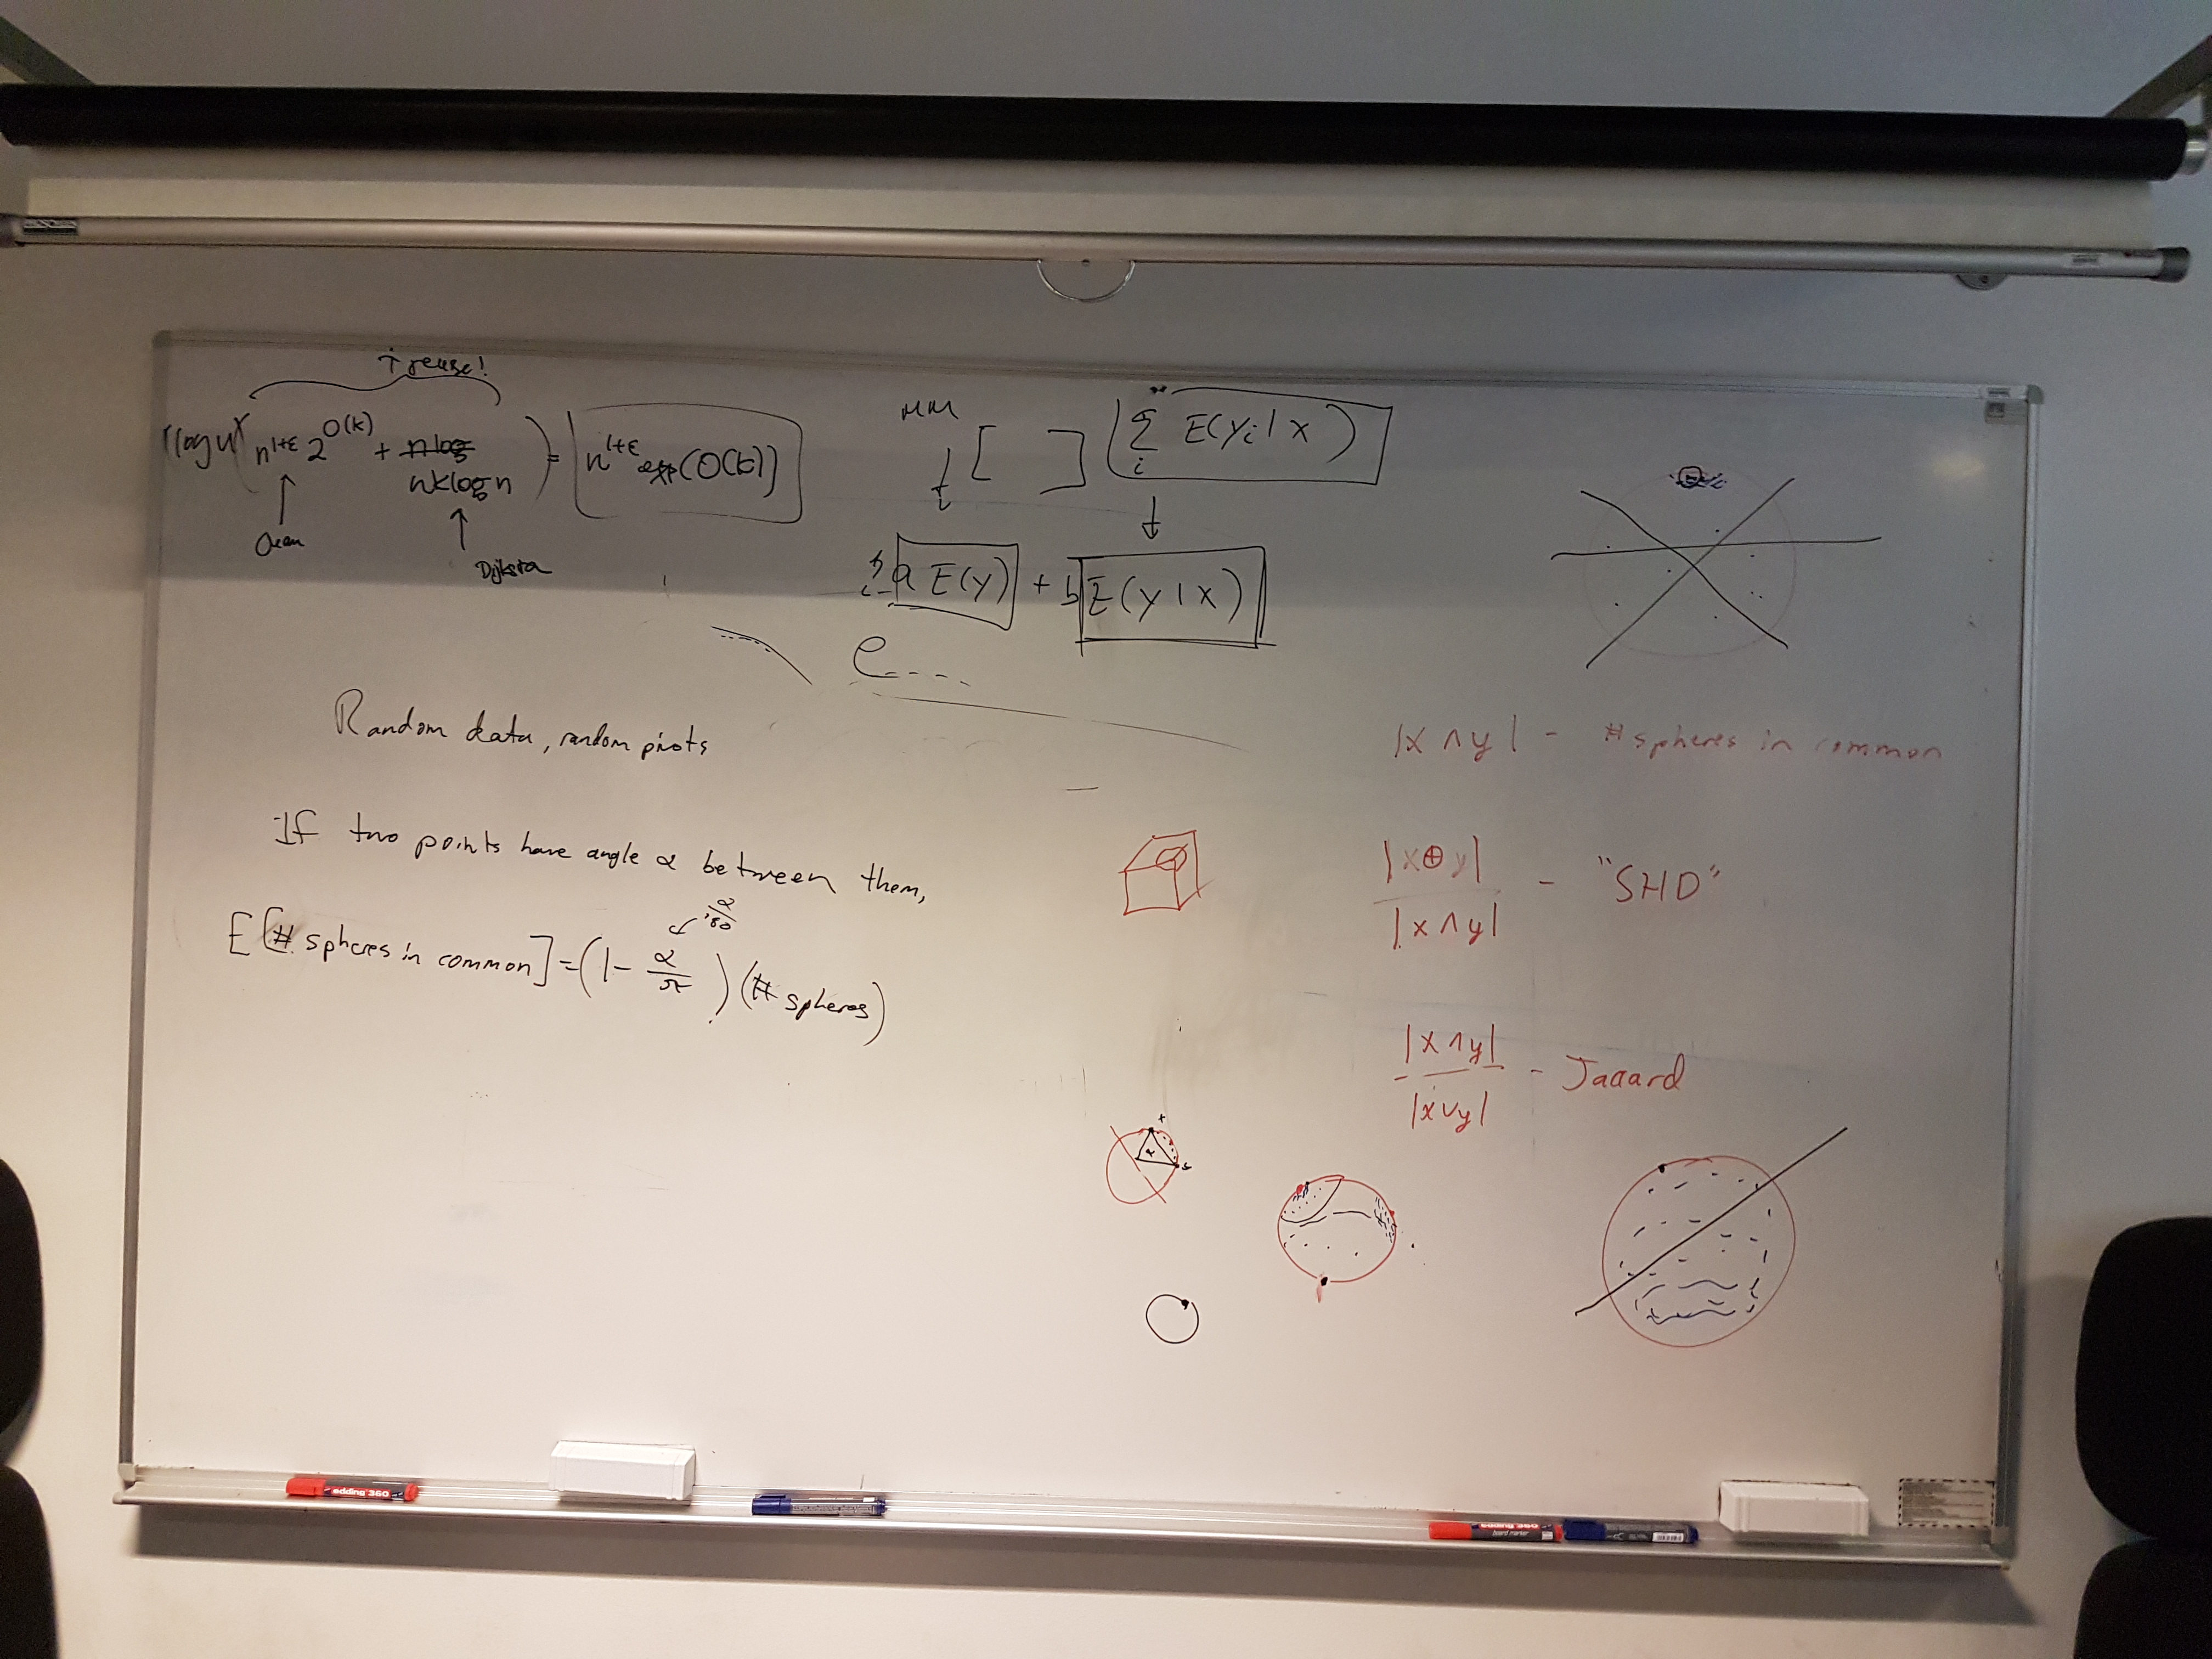 ↑ reuse!
(log n)( n^{1+ε} 2^{O(k)} + nk log n ) = n^{1+ε} exp(O(k))
Dijkstra
MM
[ ] Σ_i E(y_i | x)
a E(y) + b E(y | x)
e----
Random data, random pivots
If two points have angle α between them,
α/180
E[# spheres in common] = (1 - α/π) (# spheres)
|x ∧ y| - # spheres in common
|x ⊕ y| / |x ∧ y| - "SHD"
|x ∧ y| / |x ∨ y| - Jaccard
x
α
y
edding 360
edding 360
board marker